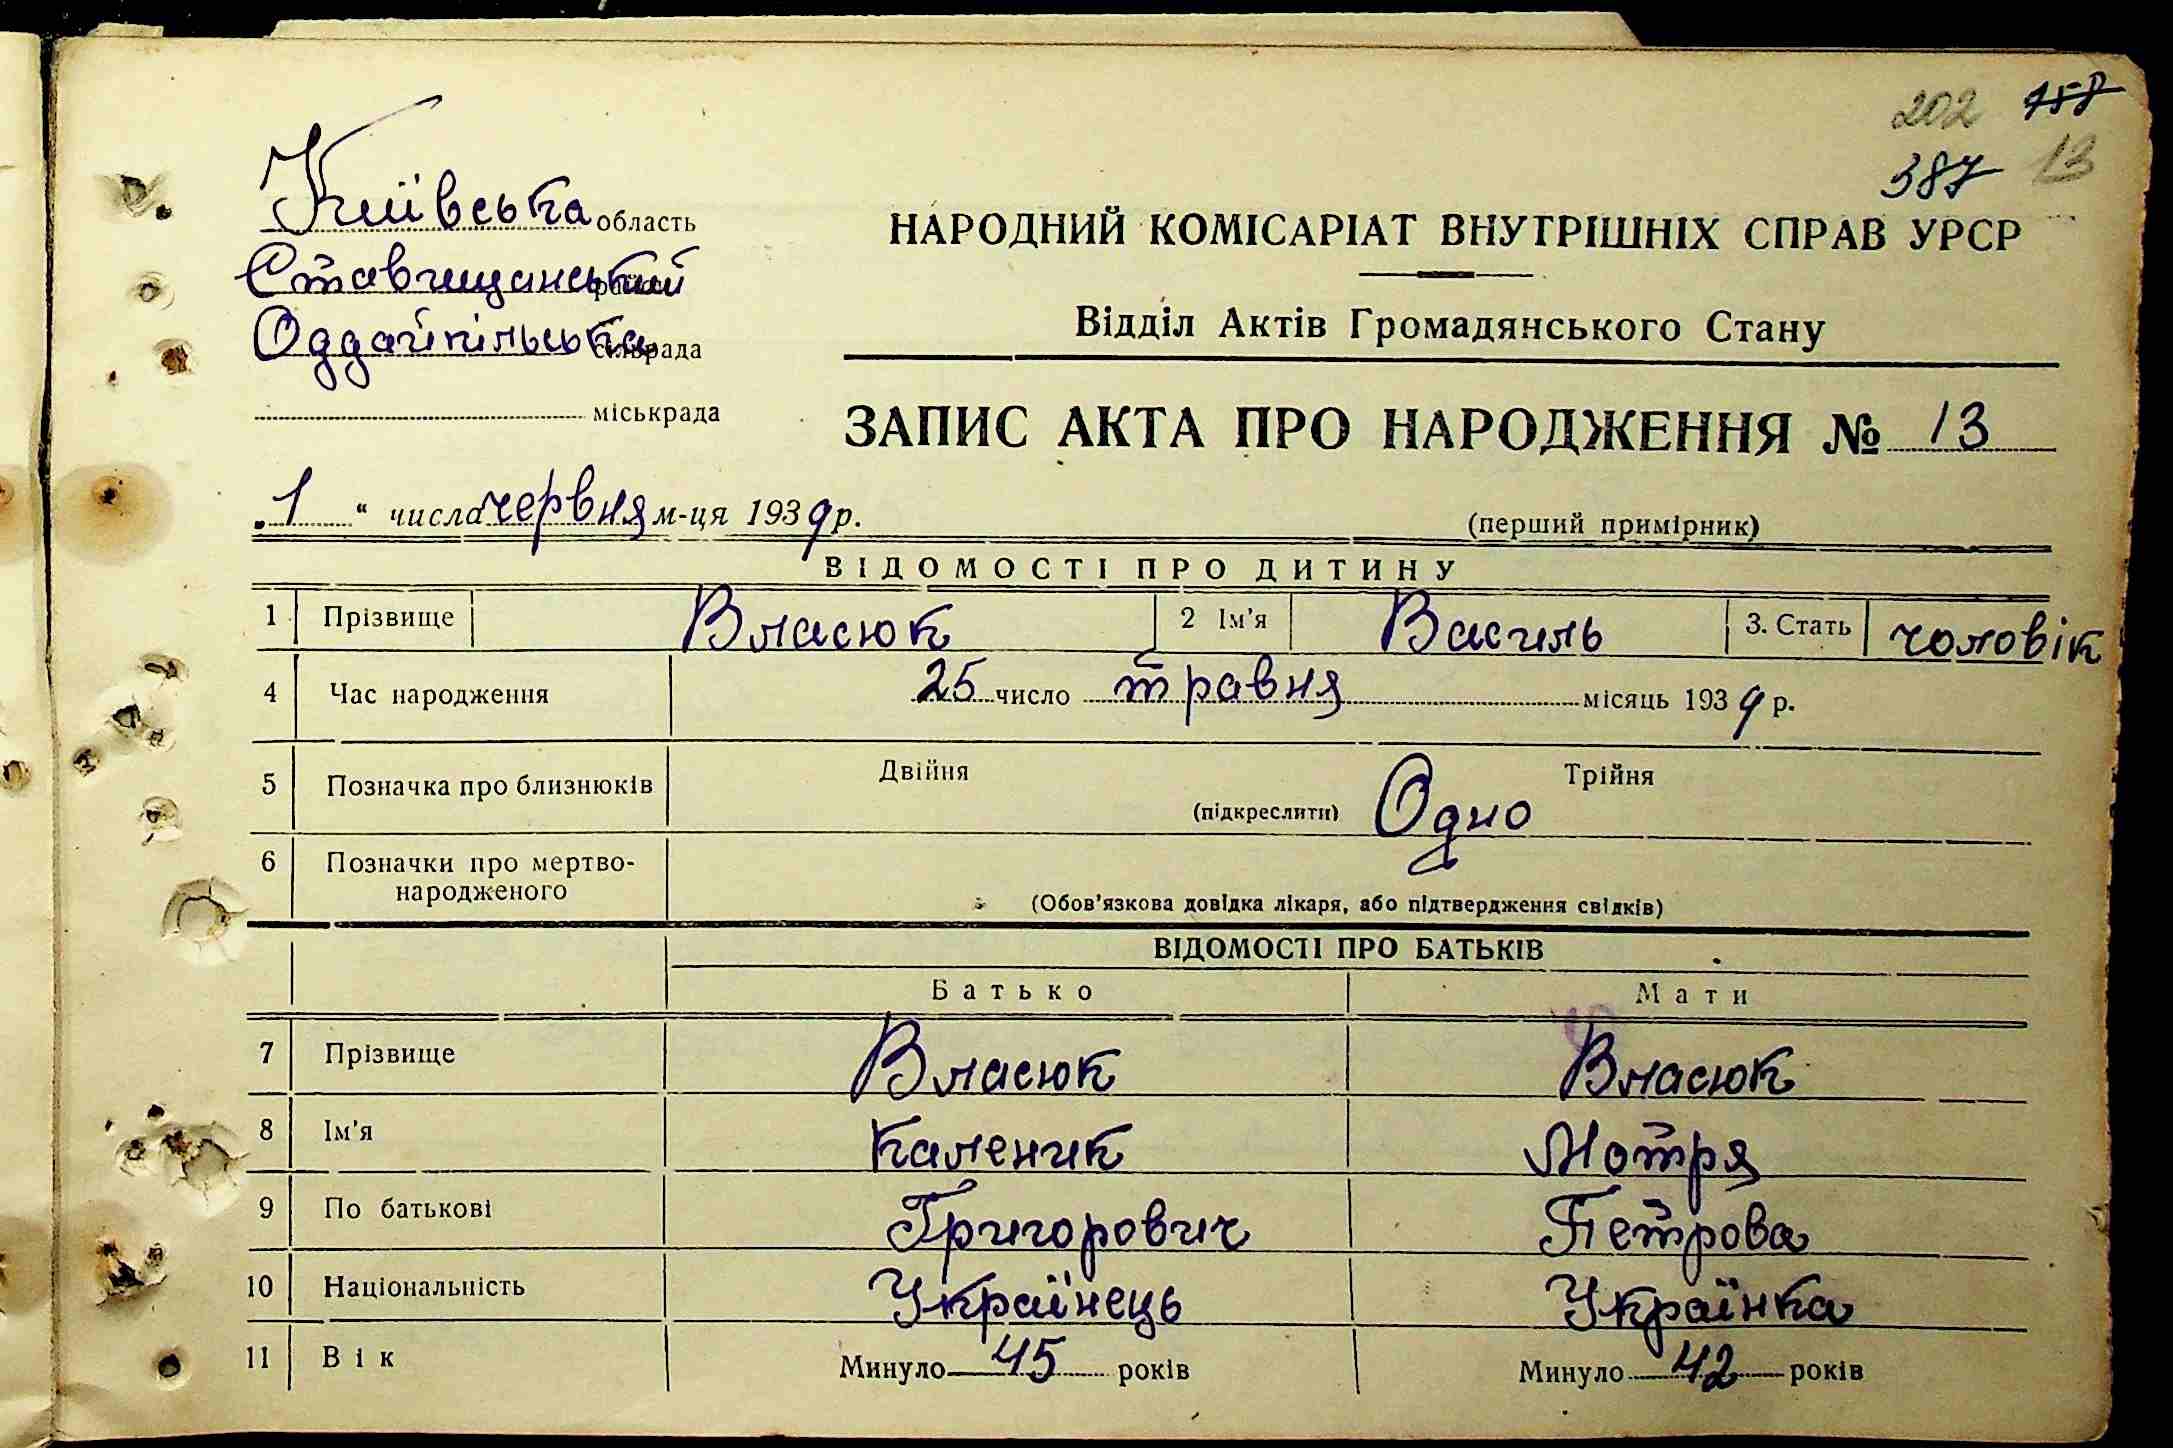 202 158
387 13
Київська область
Ставищанський район
Оддайпільська сільрада
міськрада
НАРОДНИЙ КОМІСАРІАТ ВНУТРІШНІХ СПРАВ УРСР
Відділ Актів Громадянського Стану
ЗАПИС АКТА ПРО НАРОДЖЕННЯ № 13
„1“ числа червня м-ця 1939 р.
(перший примірник)
ВІДОМОСТІ ПРО ДИТИНУ
1 Прізвище Власюк 2 Ім'я Василь 3. Стать чоловік
4 Час народження 25 число травня місяць 1939 р.
5 Позначка про близнюків Двійня (підкреслити) Одно Трійня
6 Позначки про мертво-
народженого (Обов'язкова довідка лікаря, або підтвердження свідків)
ВІДОМОСТІ ПРО БАТЬКІВ
Батько Мати
7 Прізвище Власюк Власюк
8 Ім'я Каленик Мотря
9 По батькові Григорович Петрова
10 Національність Українець Українка
11 Вік Минуло 45 років Минуло 42 років